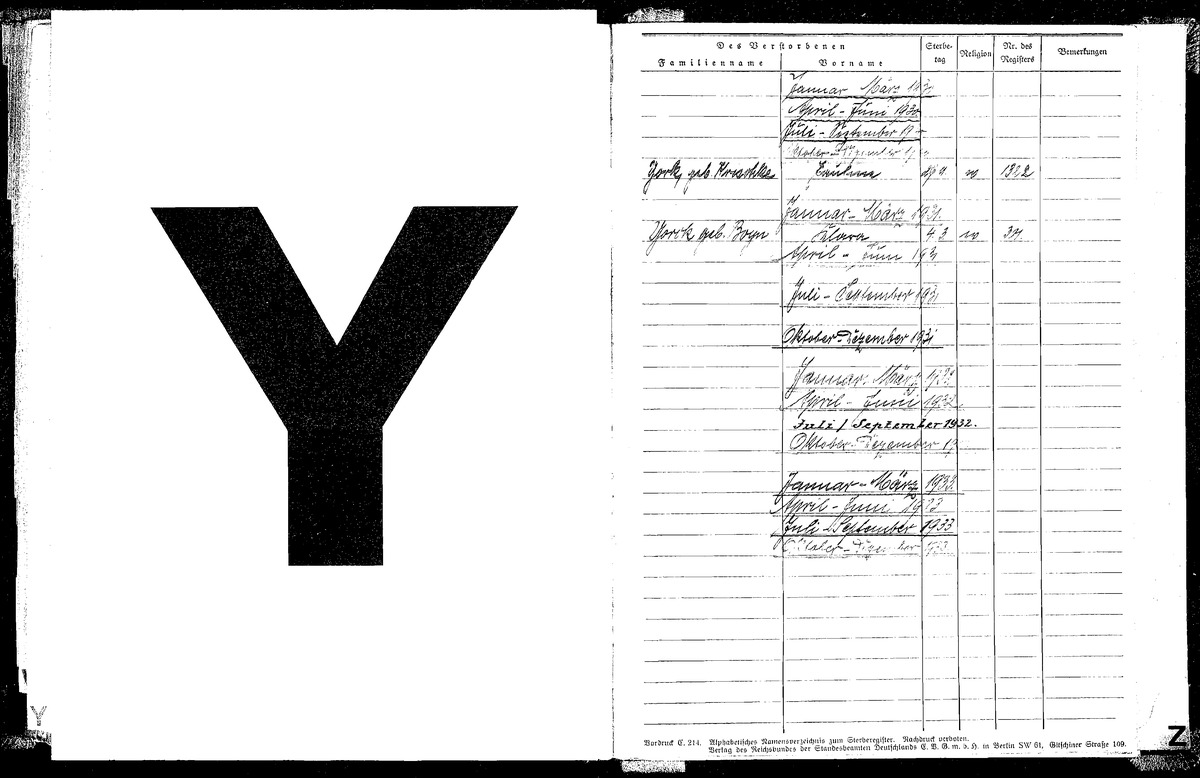 Y
Y
Des Verstorbenen
Familienname
Vorname
Sterbe-
tag
Religion
Nr. des
Registers
Bemerkungen
Januar März 193
April - Juni 1930
Juli - September 19
Oktober - Dezember 19
York, geb.
29 9 w 1322
Januar - März 1931.
Yorck geb. Clara 4 3 w
April - Juni 193
Juli - September 193
Oktober - Dezember 1931
Januar - März 1932
April - Juni 1932.
Juli / September 1932.
Oktober - Dezember 19
Januar - März 1933
April - Juni 1933
Juli - September 1933
Oktober - Dezember 1933
Vordruck C. 214. Alphabetisches Namensverzeichnis zum Sterberegister. Nachdruck verboten.
Verlag des Reichsbundes der Standesbeamten Deutschlands E. V. G. m. b. H. in Berlin SW 61, Gitschiner Straße 109.
Z